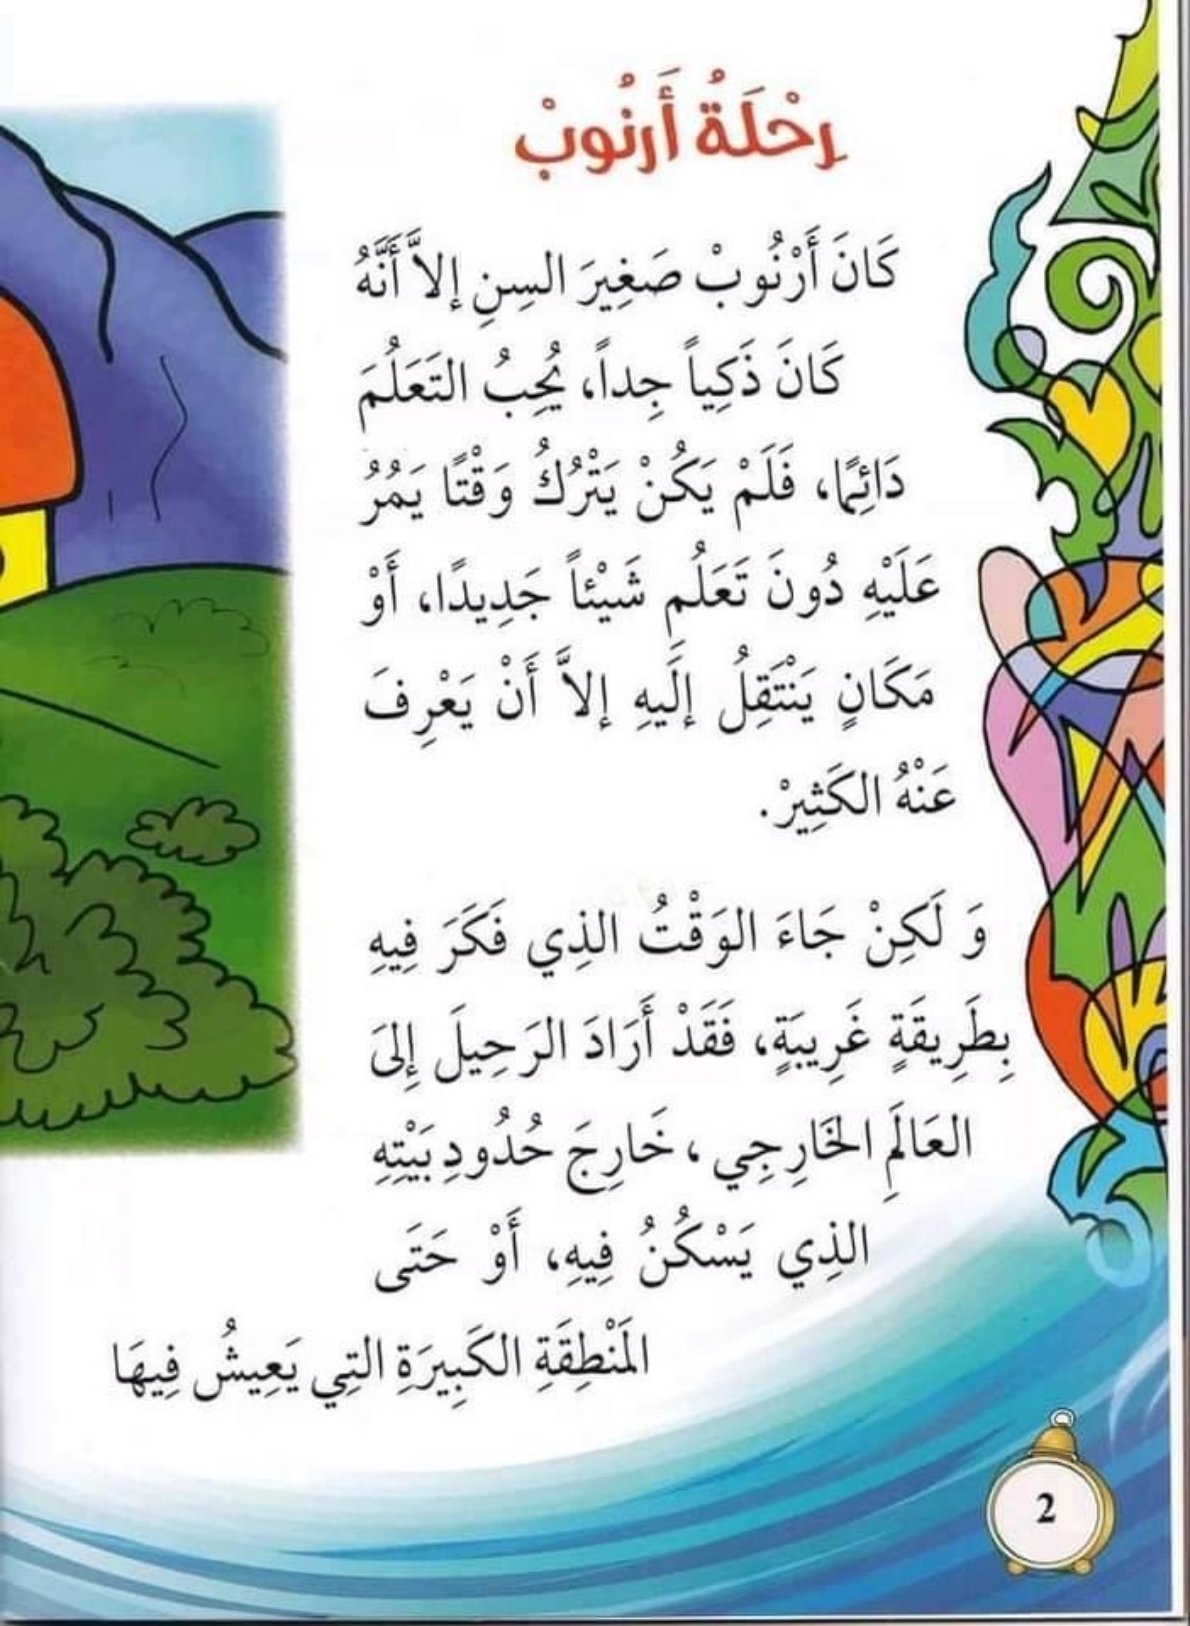 رِحْلَةُ أَرنُوبْ
كَانَ أَرْنُوبْ صَغِيرَ السِنِ إلاَّ أَنَّهُ
كَانَ ذَكِياً جِداً، يُحِبُ التَعَلُمَ
دَائِمًا، فَلَمْ يَكُنْ يَتْرُكُ وَقْتًا يَمُرُ
عَلَيْهِ دُونَ تَعَلُمِ شَيْئاً جَدِيدًا، أَوْ
مَكَانٍ يَنْتَقِلُ إلَيهِ إلاَّ أَنْ يَعْرِفَ
عَنْهُ الكَثِيرْ.
وَ لَكِنْ جَاءَ الوَقْتُ الذِي فَكَرَ فِيهِ
بِطَرِيقَةٍ غَرِيبَةٍ، فَقَدْ أَرَادَ الرَحِيلَ إِلىَ
العَالَمِ الخَارِجِي ، خَارِجَ حُدُودِ بَيْتِهِ
الذِي يَسْكُنُ فِيهِ، أَوْ حَتَى
المَنْطِقَةِ الكَبِيرَةِ التِي يَعِيشُ فِيهَا
2